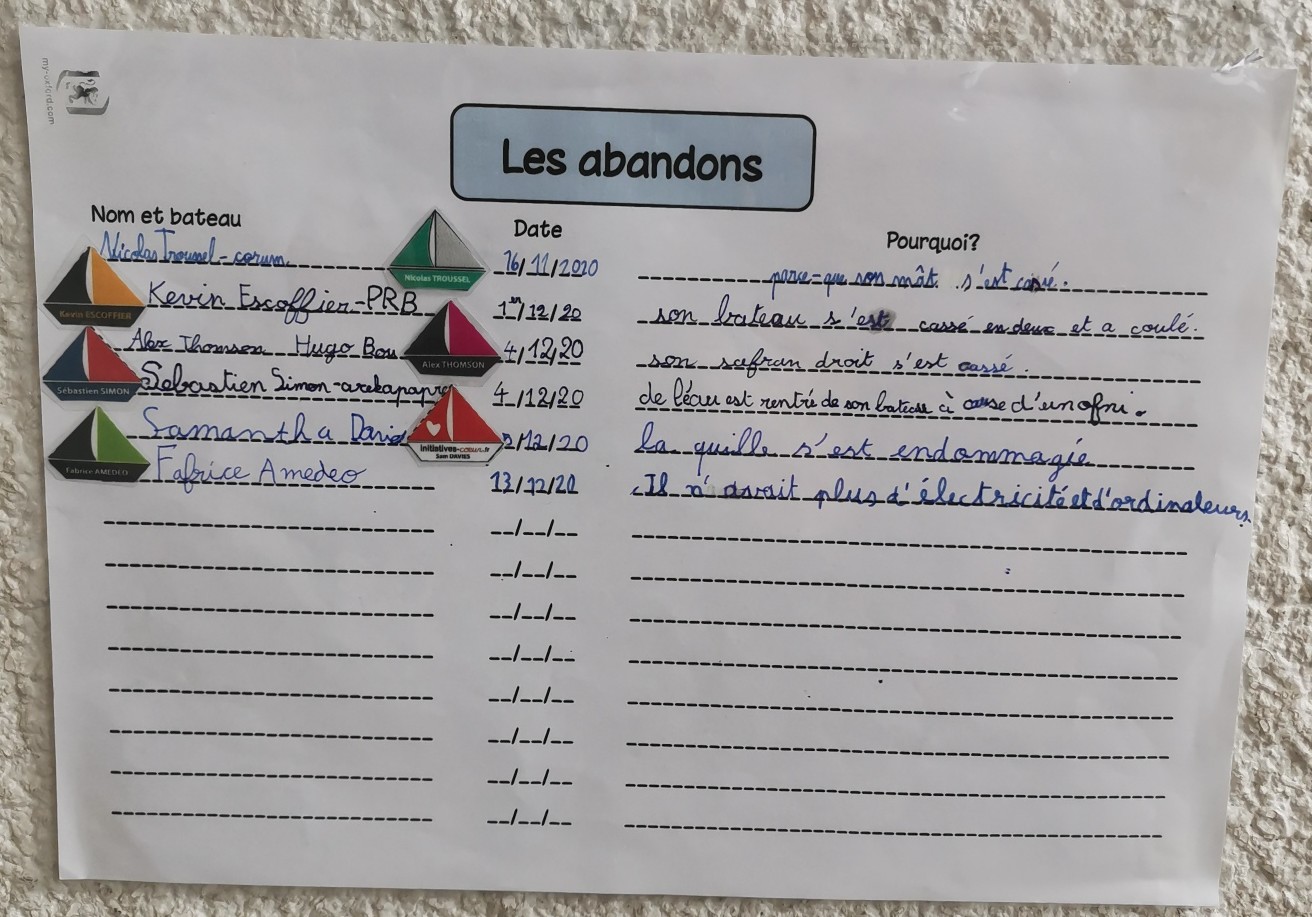 my-oxford.com
Les abandons
Nom et bateau Date Pourquoi?
Nicolas Troussel-corum. Nicolas TROUSSEL 16/11/2020 parce-que son mât s'est cassé.
Kevin ESCOFFIER Kevin Escoffier-PRB 1er/12/20 son bateau s'est cassé en deux et a coulé.
Alex Thomson Hugo Bou Alex THOMSON 4/12/20 son safran droit s'est cassé.
Sébastien SIMON Sebastien Simon-arekapapre 4/12/20 de l'éau est rentré de son bateau à cause d'un ofni.
Samantha David initiatives-cœur.fr Sam DAVIES /12/20 la quille s'est endommagée
Fabrice AMEDEO Fabrice Amedeo 13/12/20 Il n'avait plus d'électricité et d'ordinateurs.
__/__/__
__/__/__
__/__/__
__/__/__
__/__/__
__/__/__
__/__/__
__/__/__